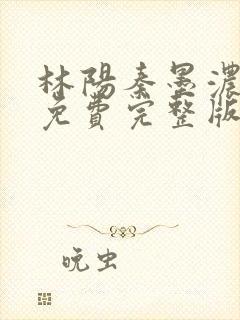 林陽秦墨濃
免費完整版
晚虫